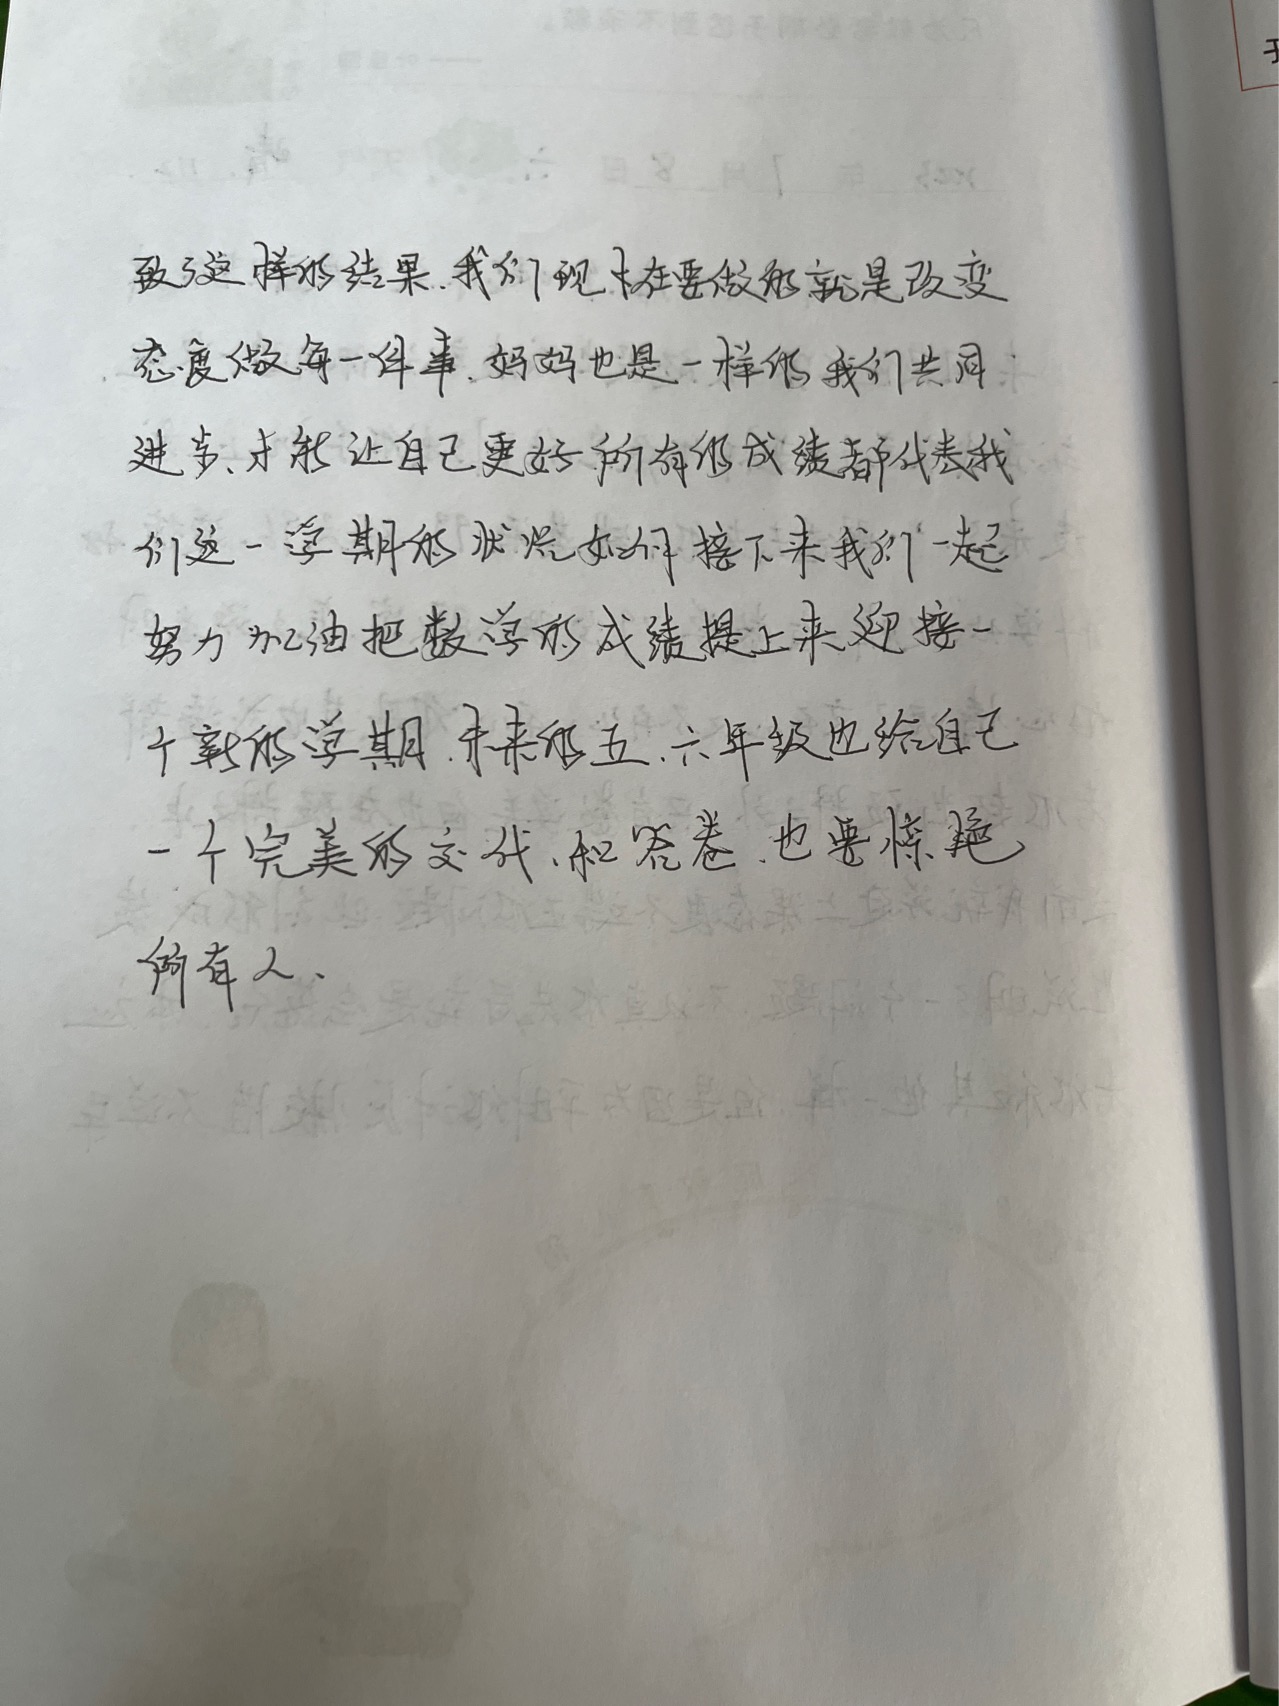 致了这样的结果.我们现在要做的就是改变
态度做每一件事.妈妈也是一样的我们共同
进步、才能让自己更好.所有的成绩都代表我
们这一学期的状况如何接下来我们一起
努力加油把数学的成绩提上来迎接一
个新的学期.未来的五、六年级也给自己
一个完美的交代、和答卷.也要惊艳
所有人、